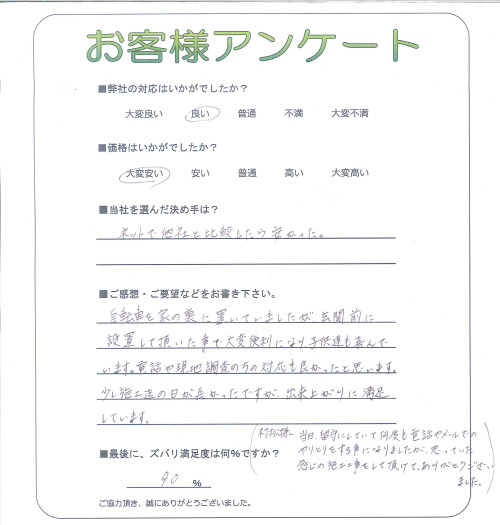 お客様アンケート
■弊社の対応はいかがでしたか？
大変良い 良い 普通 不満 大変不満
■価格はいかがでしたか？
大変安い 安い 普通 高い 大変高い
■当社を選んだ決め手は？
ネットで他社と比較したら安かった。
■ご感想・ご要望などをお書き下さい。
自転車を家の裏に置いていましたが玄関前に
設置して頂いた事で大変便利になり子供達も喜んで
います。電話や現地調査の方の対応も良かったと思います。
少し施工迄の日が長かったですが、出来上がりに満足
しています。
■最後に、ズバリ満足度は何%ですか？
90 %
村松様へ 当日、留守にしていて何度も電話やメールでの
やりとりをする事になりましたが、思っていた
感じの施工工事をして頂けて、ありがとうござい
ました。
ご協力頂き、誠にありがとうございました。